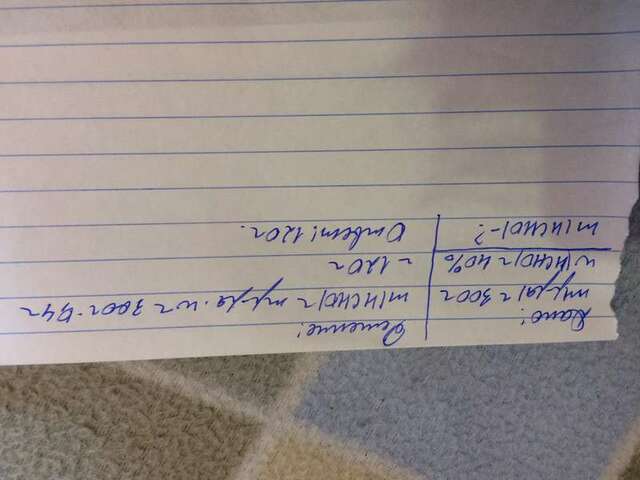 Дано:
m(р-ра) = 300г
w(HCHO) = 40%
m(HCHO) - ?
Решение:
m(HCHO) = mр-ра · w = 300г · 0,4 =
= 120г
Ответ: 120г.